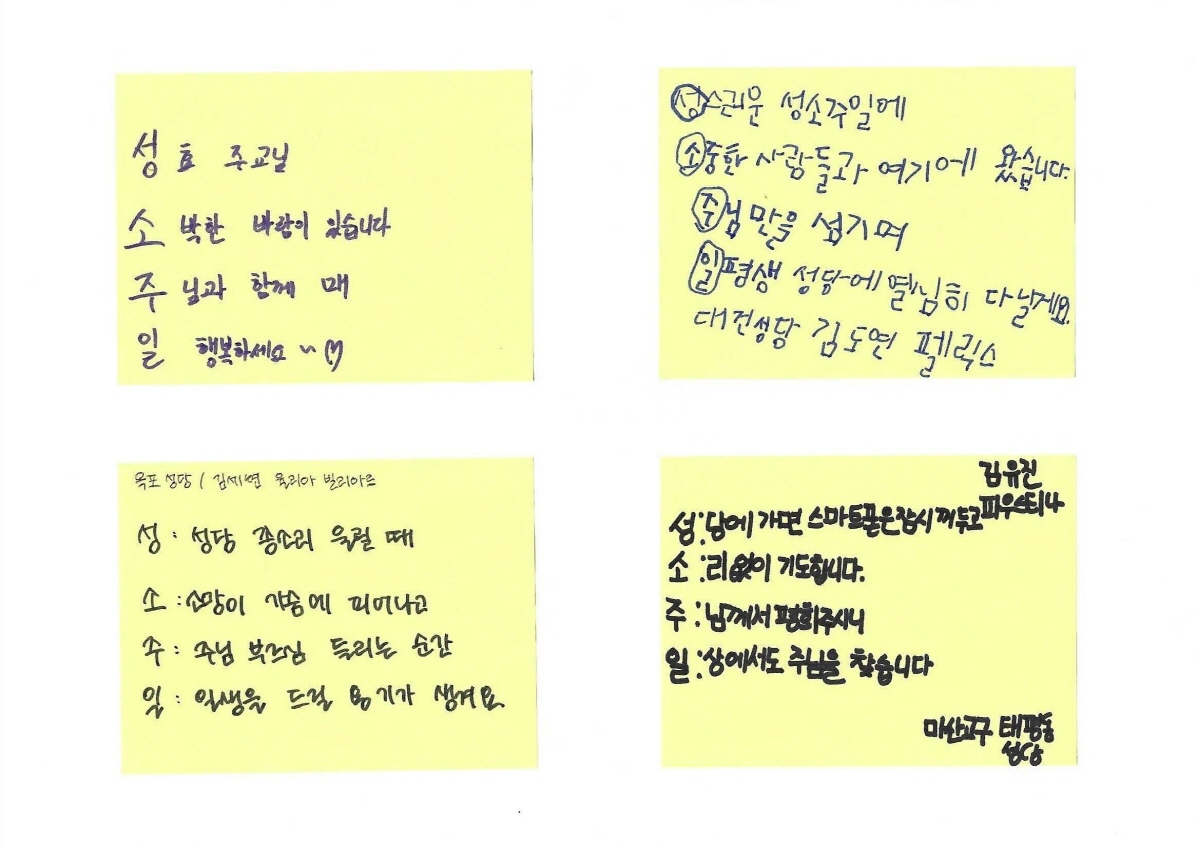 성효 주교님
소박한 바람이 있습니다
주님과 함께 매
일 행복하세요~♡
성스러운 성소주일에
소중한 사람들과 여기에 왔습니다.
주님만을 섬기며
일평생 성당에 열심히 다닐게요.
성당 김도연 펠릭스
성당 / 김세연 율리아 빌리아르
성 : 성당 종소리 울릴 때
소 : 소망이 가슴에 피어나고
주 : 주님 부르심 들리는 순간
일 : 일생을 드릴 용기가 생겨요
김유진
피우스티나
성:당에 가면 스마트폰은 잠시 꺼두고
소:리없이 기도합니다.
주:님께서 평화주시니
일:상에서도 주님을 찾습니다
마산교구 태평동
성당